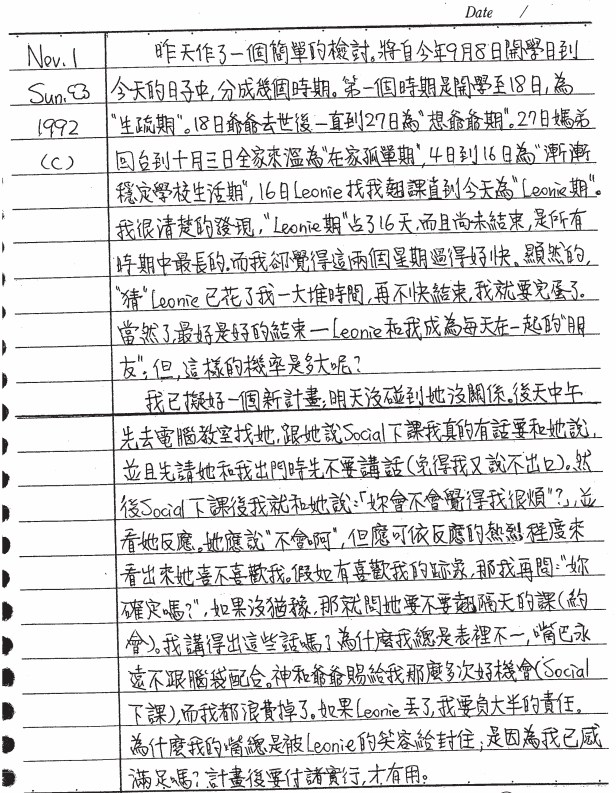 Date /
Nov. 1 昨天作了一個簡單的檢討。將自今年9月8日開學日到
Sun. 93 今天的日子中,分成幾個時期。第一個時期是開學至18日,為
1992 "生疏期"。18日爺爺去世後一直到27日為"想爺爺期"。27日媽弟
(C) 回台到十月三日全家來溫為"在家孤單期",4日到16日為"漸漸
穩定學校生活期",16日Leonie找我翹課直到今天為"Leonie期"。
我很清楚的發現,"Leonie期"占了16天,而且尚未結束,是所有
時期中最長的,而我卻覺得這兩個星期過得好快。顯然的,
"猜"Leonie已花了我一大堆時間,再不快結束,我就要完蛋了。
當然了,最好是好的結束—Leonie和我成為每天在一起的"朋
友";但,這樣的機率是多大呢?
我已擬好一個新計畫;明天沒碰到她沒關係。後天中午
先去電腦教室找她,跟她說Social下課我真的有話要和她說,
並且先請她和我出門時先不要講話(免得我又說不出口)。然
後Social下課後我就和她說:「妳會不會覺得我很煩"?」,並
看她反應。她應說"不會啊",但應可依反應的熱烈程度來
看出來她喜不喜歡我。假如有喜歡我的跡象,那我再問:"妳
確定嗎?",如果沒猶豫,那就問她要不要翹隔天的課(約
會)。我講得出這些話嗎?為什麼我總是表裡不一,嘴巴永
遠不跟腦袋配合。神和爺爺賜給我那麼多次好機會(Social
下課),而我都浪費掉了。如果Leonie丟了,我要負大半的責任。
為什麼我的嘴總是被Leonie的笑容給封住;是因為我已感
滿足嗎?計畫後要付諸實行,才有用。